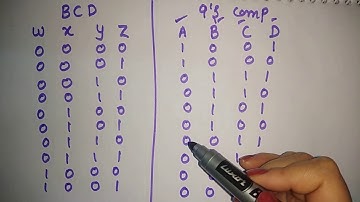 BCD 9's Comp
W X Y Z A B C D
0 0 0 0 1 0 0 1
0 0 0 1 1 0 0 0
0 0 1 0 0 1 1 1
0 0 1 1 0 1 1 0
0 1 0 0 0 1 0 1
0 1 0 1 0 1 0 0
0 1 1 0 0 0 1 1
0 1 1 1 0
1 0 0 0 0
1 0 0 1 0 0